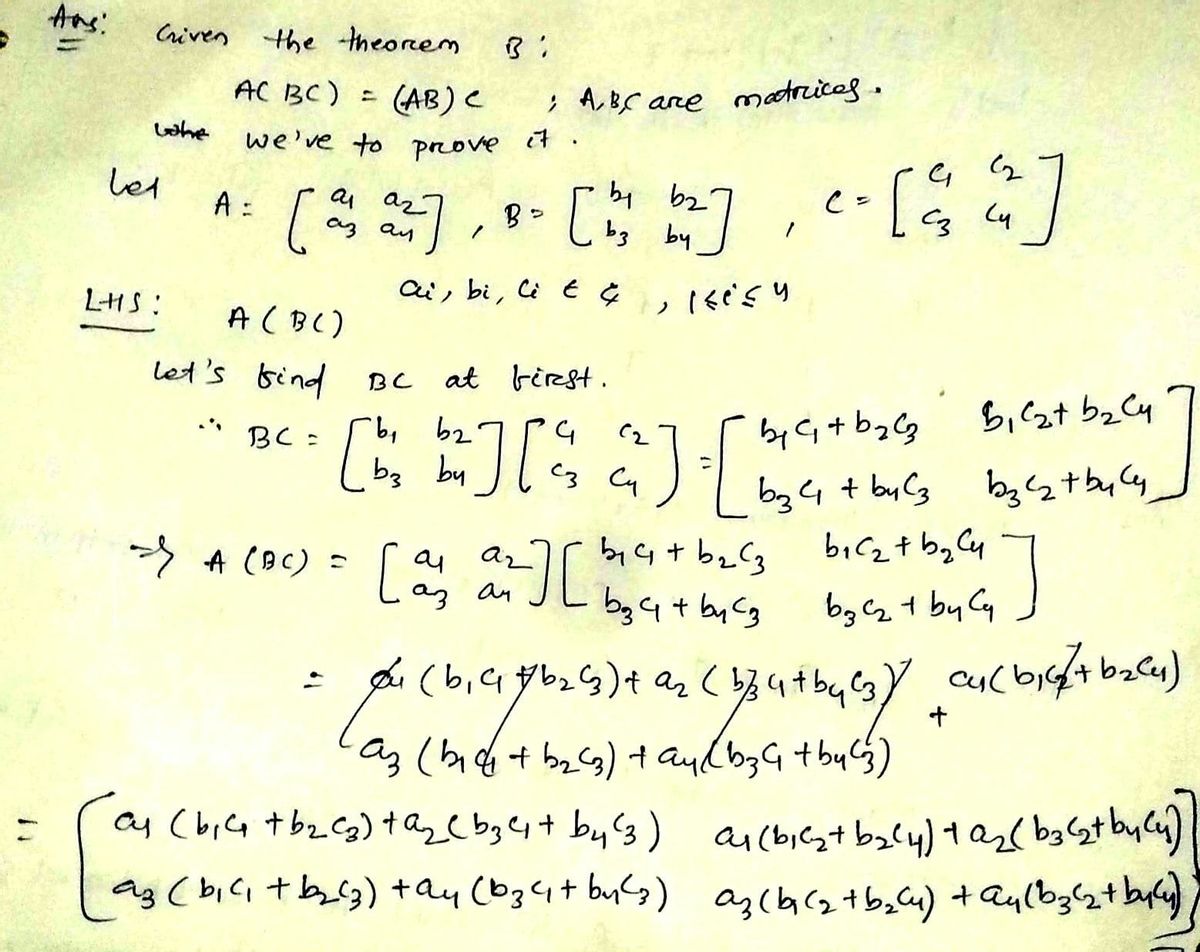 Ans: Given the theorem B:
A(BC) = (AB)C ; A,B,C are matrices.
we've to prove it.
Let A = [a₁ a₂; a₃ a₄], B = [b₁ b₂; b₃ b₄], C = [c₁ c₂; c₃ c₄]
ai, bi, ci ∈ ₵, 1≤i≤4
LHS: A(BC)
Let's find BC at first.
∴ BC = [b₁ b₂; b₃ b₄][c₁ c₂; c₃ c₄] = [b₁c₁+b₂c₃ b₁c₂+b₂c₄; b₃c₁+b₄c₃ b₃c₂+b₄c₄]
⇒ A(BC) = [a₁ a₂; a₃ a₄][b₁c₁+b₂c₃ b₁c₂+b₂c₄; b₃c₁+b₄c₃ b₃c₂+b₄c₄]
= a₁(b₁c₁+b₂c₃)+a₂(b₃c₁+b₄c₃) a₁(b₁c₂+b₂c₄)+
a₃(b₁c₁+b₂c₃)+a₄(b₃c₁+b₄c₃)
= [a₁(b₁c₁+b₂c₃)+a₂(b₃c₁+b₄c₃) a₁(b₁c₂+b₂c₄)+a₂(b₃c₂+b₄c₄)
a₃(b₁c₁+b₂c₃)+a₄(b₃c₁+b₄c₃) a₃(b₁c₂+b₂c₄)+a₄(b₃c₂+b₄c₄)]